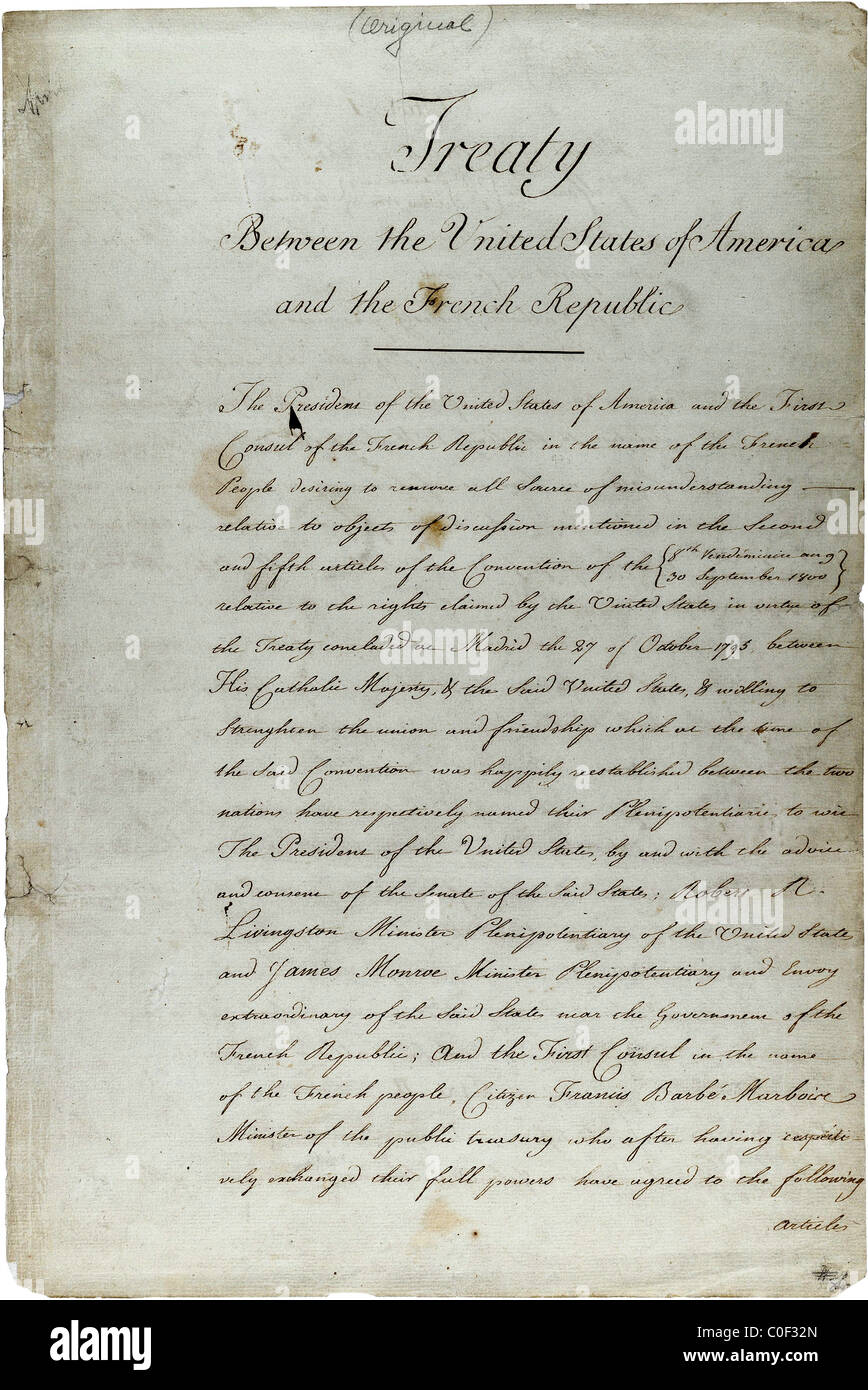 (Original)
Treaty
Between the United States of America
and the French Republic
The President of the United States of America and the First
Consul of the French Republic in the name of the French
People desiring to remove all Source of misunderstanding
relative to objects of discussion mentioned in the Second
and fifth articles of the Convention of the {8th Vendémiaire an 9
30 September 1800}
relative to the rights claimed by the United States in virtue of
the Treaty concluded at Madrid the 27 of October 1795, between
His Catholic Majesty, & the Said United States, & willing to
Strenghten the union and friendship which at the time of
the Said Convention was happily reestablished between the two
nations have respectively named their Plenipotentiaries to wit
The President of the United States, by and with the advice
and consent of the Senate of the Said States; Robert R.
Livingston Minister Plenipotentiary of the United States
and James Monroe Minister Plenipotentiary and Envoy
extraordinary of the Said States near the Government of the
French Republic; And the First Consul in the name
of the French people, Citizen Francis Barbé Marbois
Minister of the public treasury who after having respecti-
vely exchanged their full powers have agreed to the following
articles
alamy
Image ID: C0F32N
www.alamy.com